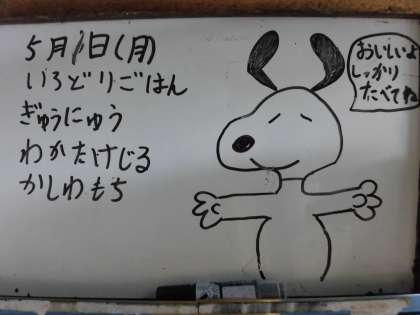 5月1日(月)
いろどりごはん
ぎゅうにゅう
わかたけじる
かしわもち
おいしいよ
しっかり
たべてね